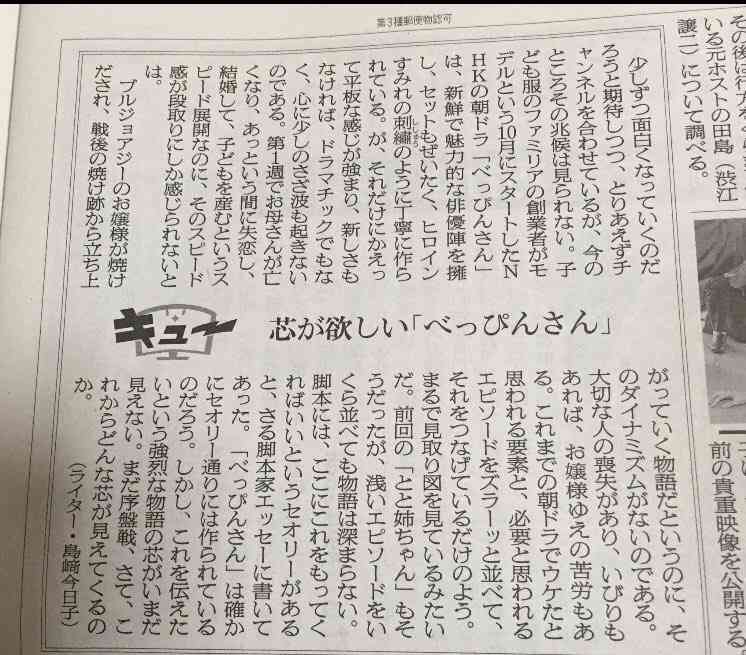 第3種郵便物認可
いる元ホストの田島（渋江
譲二）について調べる。
少しずつ面白くなっていくのだ
ろうと期待しつつ、とりあえずチ
ャンネルを合わせているが、今の
ところその兆候は見られない。子
ども服のファミリアの創業者がモ
デルという10月にスタートしたN
HKの朝ドラ「べっぴんさん」
は、新鮮で魅力的な俳優陣を擁
し、セットもぜいたく、ヒロイン
すみれの刺繍のように丁寧に作ら
れている。が、それだけにかえっ
て平板な感じが強まり、新しさも
なければ、ドラマチックでもな
く、心に少しのさざ波も起きない
のである。第1週でお母さんが亡
くなり、あっという間に失恋し、
結婚して、子どもを産むというス
ピード展開なのに、そのスピード
感が段取りにしか感じられないと
は。
ブルジョアジーのお嬢様が焼け
だされ、戦後の焼け跡から立ち上
キュー
芯が欲しい「べっぴんさん」
がっていく物語だというのに、そ
のダイナミズムがないのである。
大切な人の喪失があり、いびりも
あれば、お嬢様ゆえの苦労もあ
る。これまでの朝ドラでウケたと
思われる要素と、必要と思われる
エピソードをズラーッと並べて、
それをつなげているだけのよう。
まるで見取り図を見ているみたい
だ。前回の「とと姉ちゃん」もそ
うだったが、浅いエピソードをい
くら並べても物語は深まらない。
脚本には、ここにこれをもってく
ればいいというセオリーがある
と、さる脚本家エッセーに書いて
あった。「べっぴんさん」は確か
にセオリー通りには作られている
のだろう。しかし、これを伝えた
いという強烈な物語の芯がいまだ
見えない。まだ序盤戦、さて、こ
れからどんな芯が見えてくるの
か。
（ライター・島﨑今日子）
前の貴重映像を公開する。